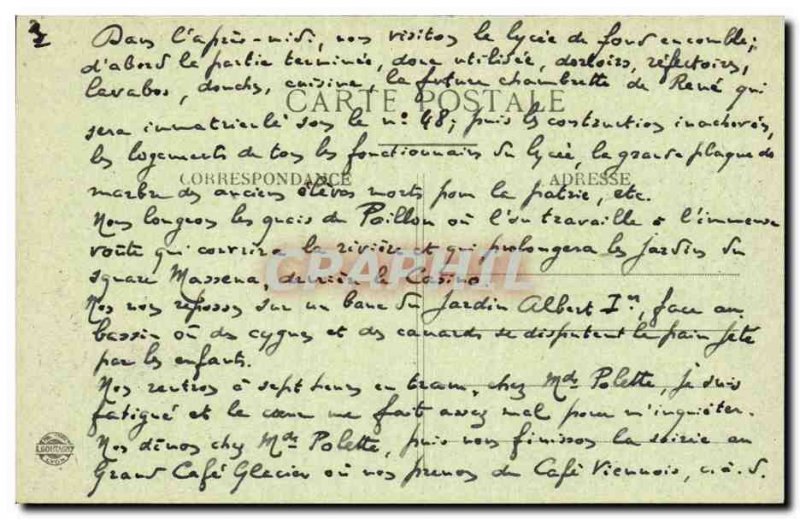 2
Dans l'après-midi, nous visitons le lycée de fond en comble;
d'abord la partie terminée, donc utilisée, dortoirs, réfectoires,
lavabos, douches, cuisine, la future chambrette de René qui
CARTE POSTALE
sera immatriculé sous le n° 48; puis les constructions inachevées,
les logements de tous les fonctionnaires du lycée, la grande plaque de
CORRESPONDANCE ADRESSE
marbre des anciens élèves morts pour la patrie, etc.
Nous longeons les quais du Paillon où l'on travaille à l'immense
voûte qui couvrira la rivière et qui prolongera les jardins du
square Massena, derrière le Casino.
CPAPHIL
Nos nos reposons sur un banc du Jardin Albert Ier, face au
bassin où des cygnes et des canards se disputent le pain jeté
par les enfants.
Nos rentrons à sept heures en tram, chez Mde Polette, je suis
fatigué et le cœur me fait assez mal pour m'inquiéter.
Nos dînons chez Mde Polette, puis nous finissons la soirée au
Grand Café Glacier où nos prenons du Café Viennois, c.à.d.
LYON